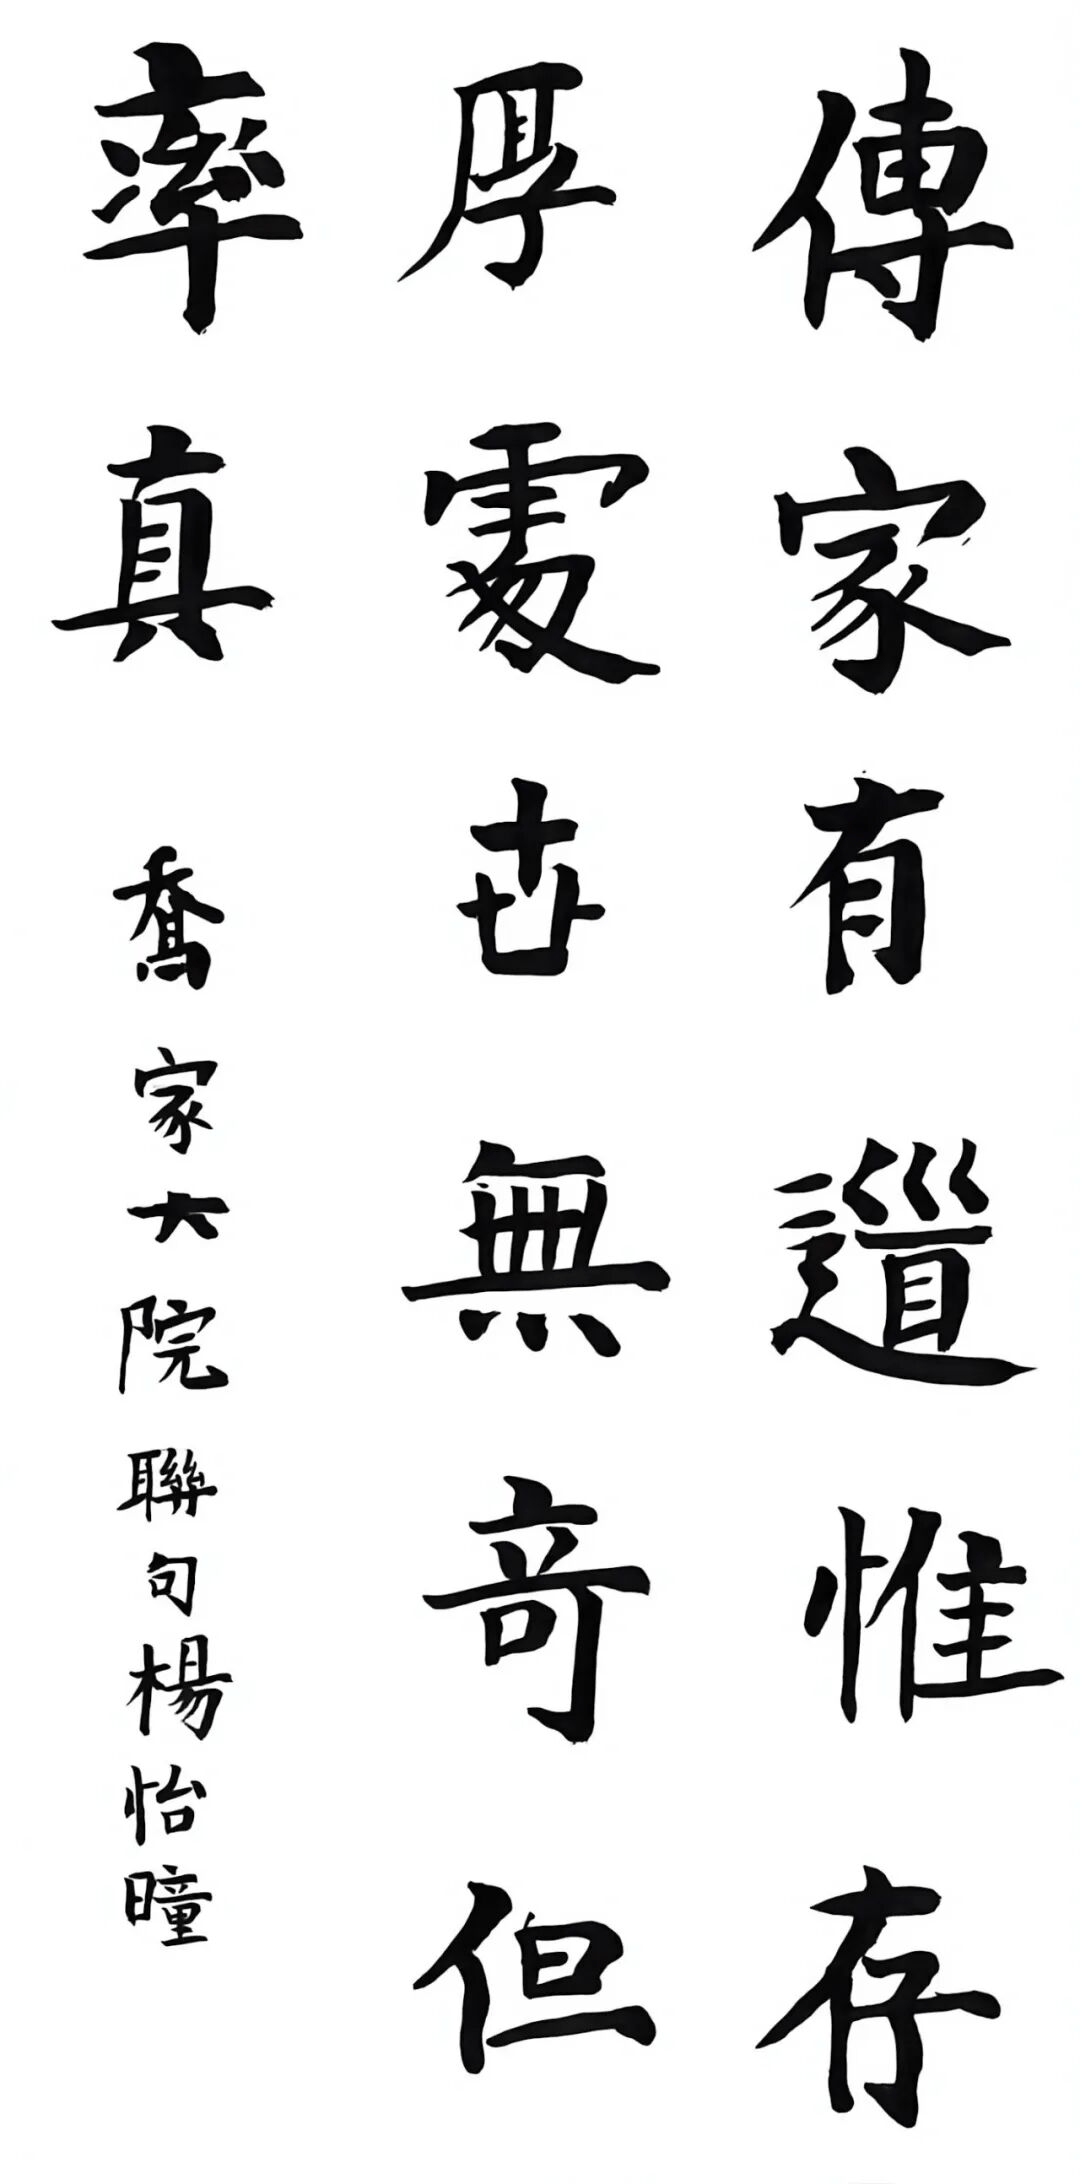 傳家有道惟存
厚處卋無竒但
率真 喬家大院聯句楊怡曈